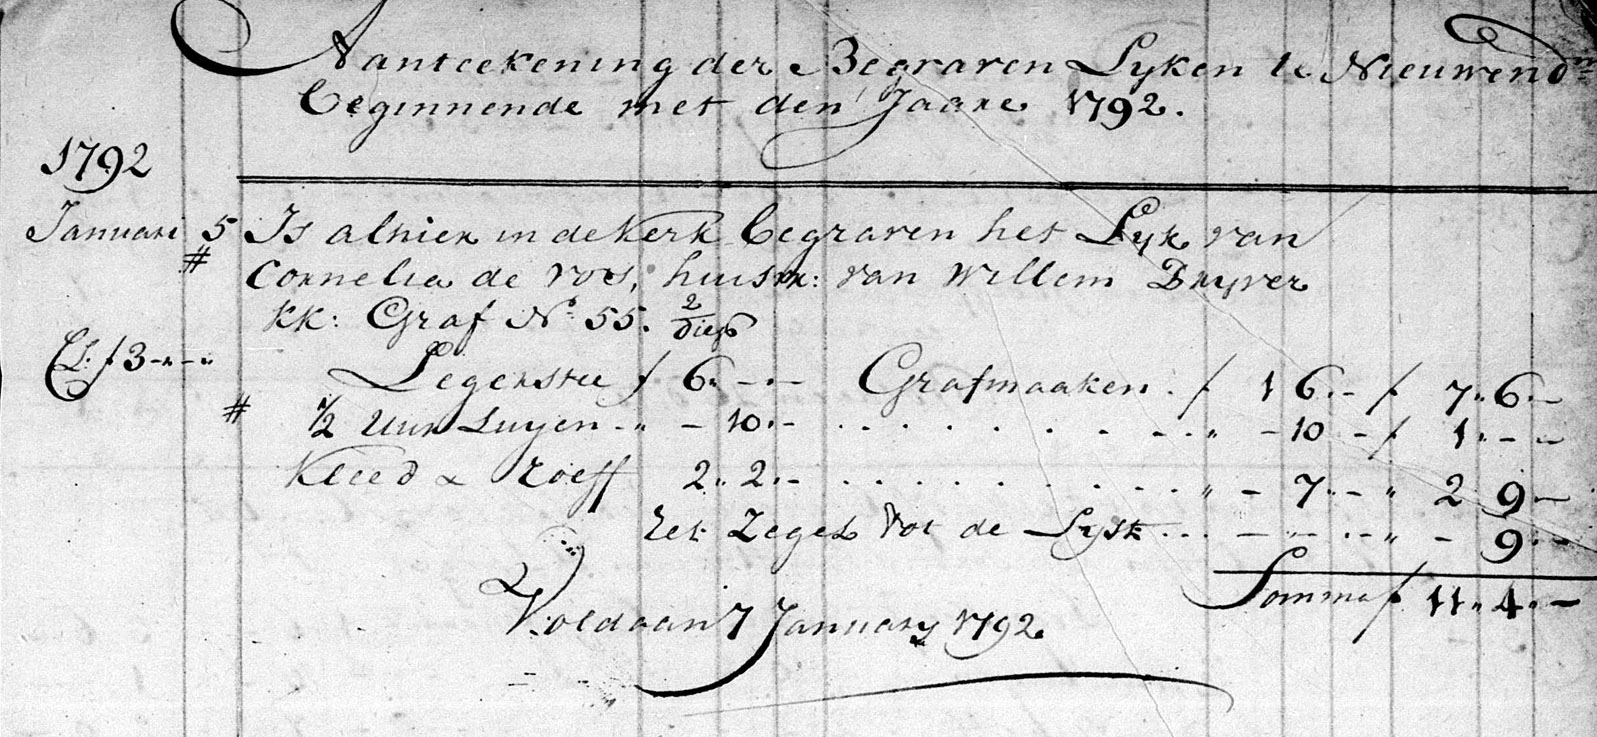 Aanteekening der Begraven Lyken te Nieuwend:m
beginnende met den Jaare 1792.
1792
Januari 5 Is alhier in de Kerk begraven het Lyk van
# Cornelia de Vos, huisvr: van Willem Dryver
kk: Graf No. 55. 2/diep
Cl. f 3-"-"
Legerstee f 6"-"- Grafmaaken: f 1 6"- f 7"6"-
# 1/2 Uur Luyen -"-10"- . . . . . . . . " -10 - f 1"-"-
Kleed & Roeff 2"2"- . . . . . . . . . . " - 7"-" 2 9"-
het Zegel tot de Lyst ... - " - .. - " - 9"-
Somma f 11"4"-
Voldaan 7 January 1792